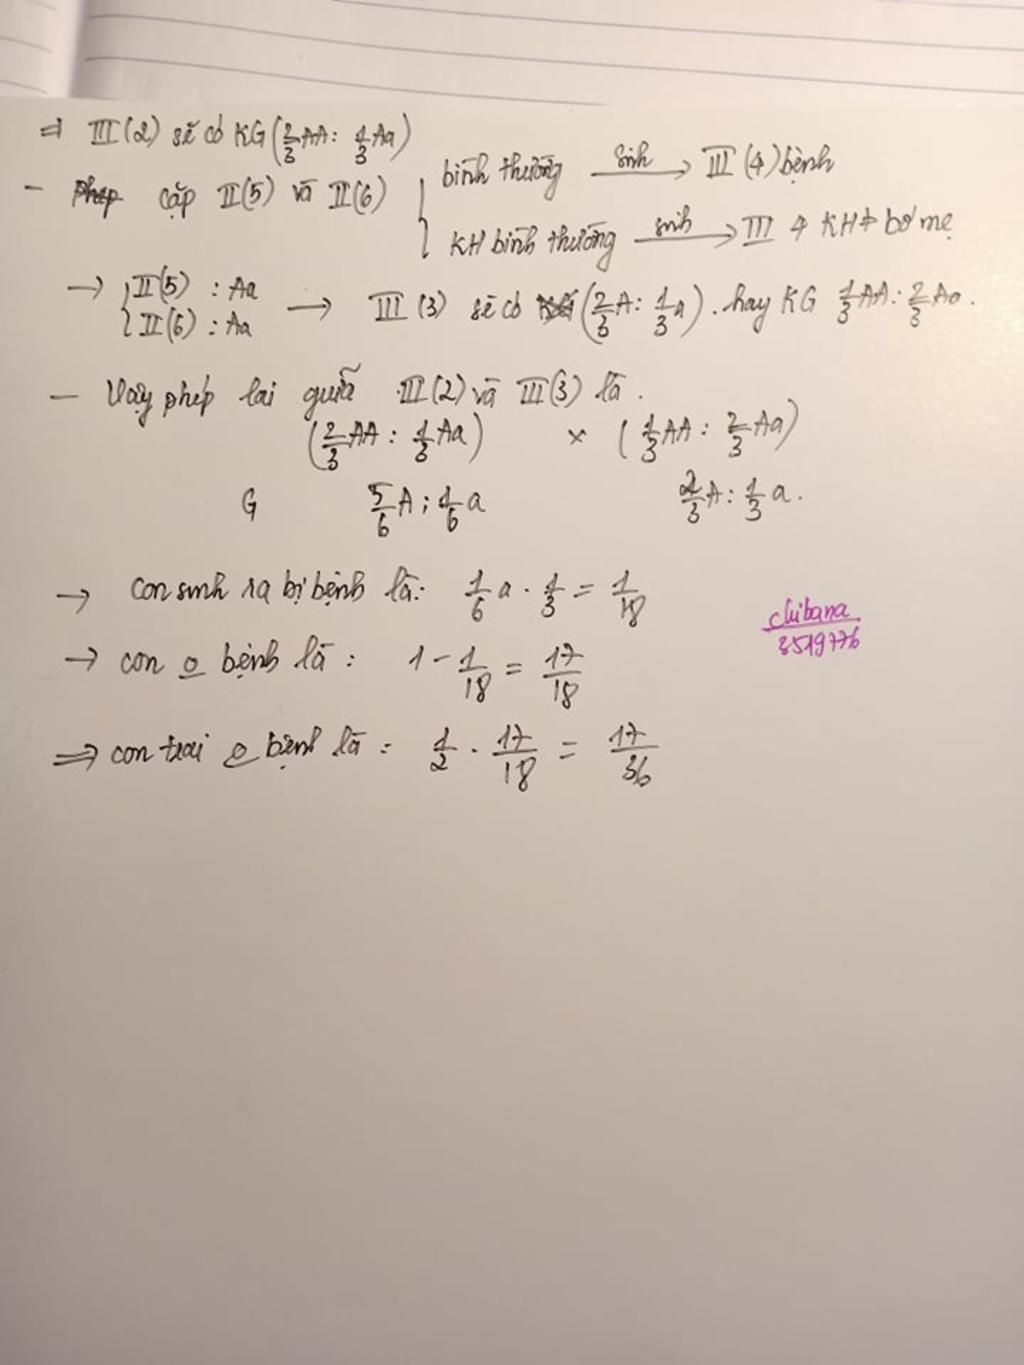 ⇒ III(2) sẽ có KG (2/3AA : 1/3Aa)
- cặp II(5) và II(6) { bình thường sinh → III(4) bệnh
KH bình thường sinh → III 4 KH ≠ bố mẹ
→ { II(5) : Aa
II(6) : Aa → III(3) sẽ có (2/3A : 1/3a). hay KG 1/3AA : 2/3Aa.
- Vậy phép lai giữa III(2) và III(3) là.
(2/3AA : 1/3Aa) × (1/3AA : 2/3Aa)
G 5/6A ; 1/6a 2/3A : 1/3a.
→ con sinh ra bị bệnh là: 1/6a . 1/3 = 1/18
chibana
3519776
→ con o bệnh là : 1 - 1/18 = 17/18
⇒ con trai o bệnh là : 1/2 . 17/18 = 17/36